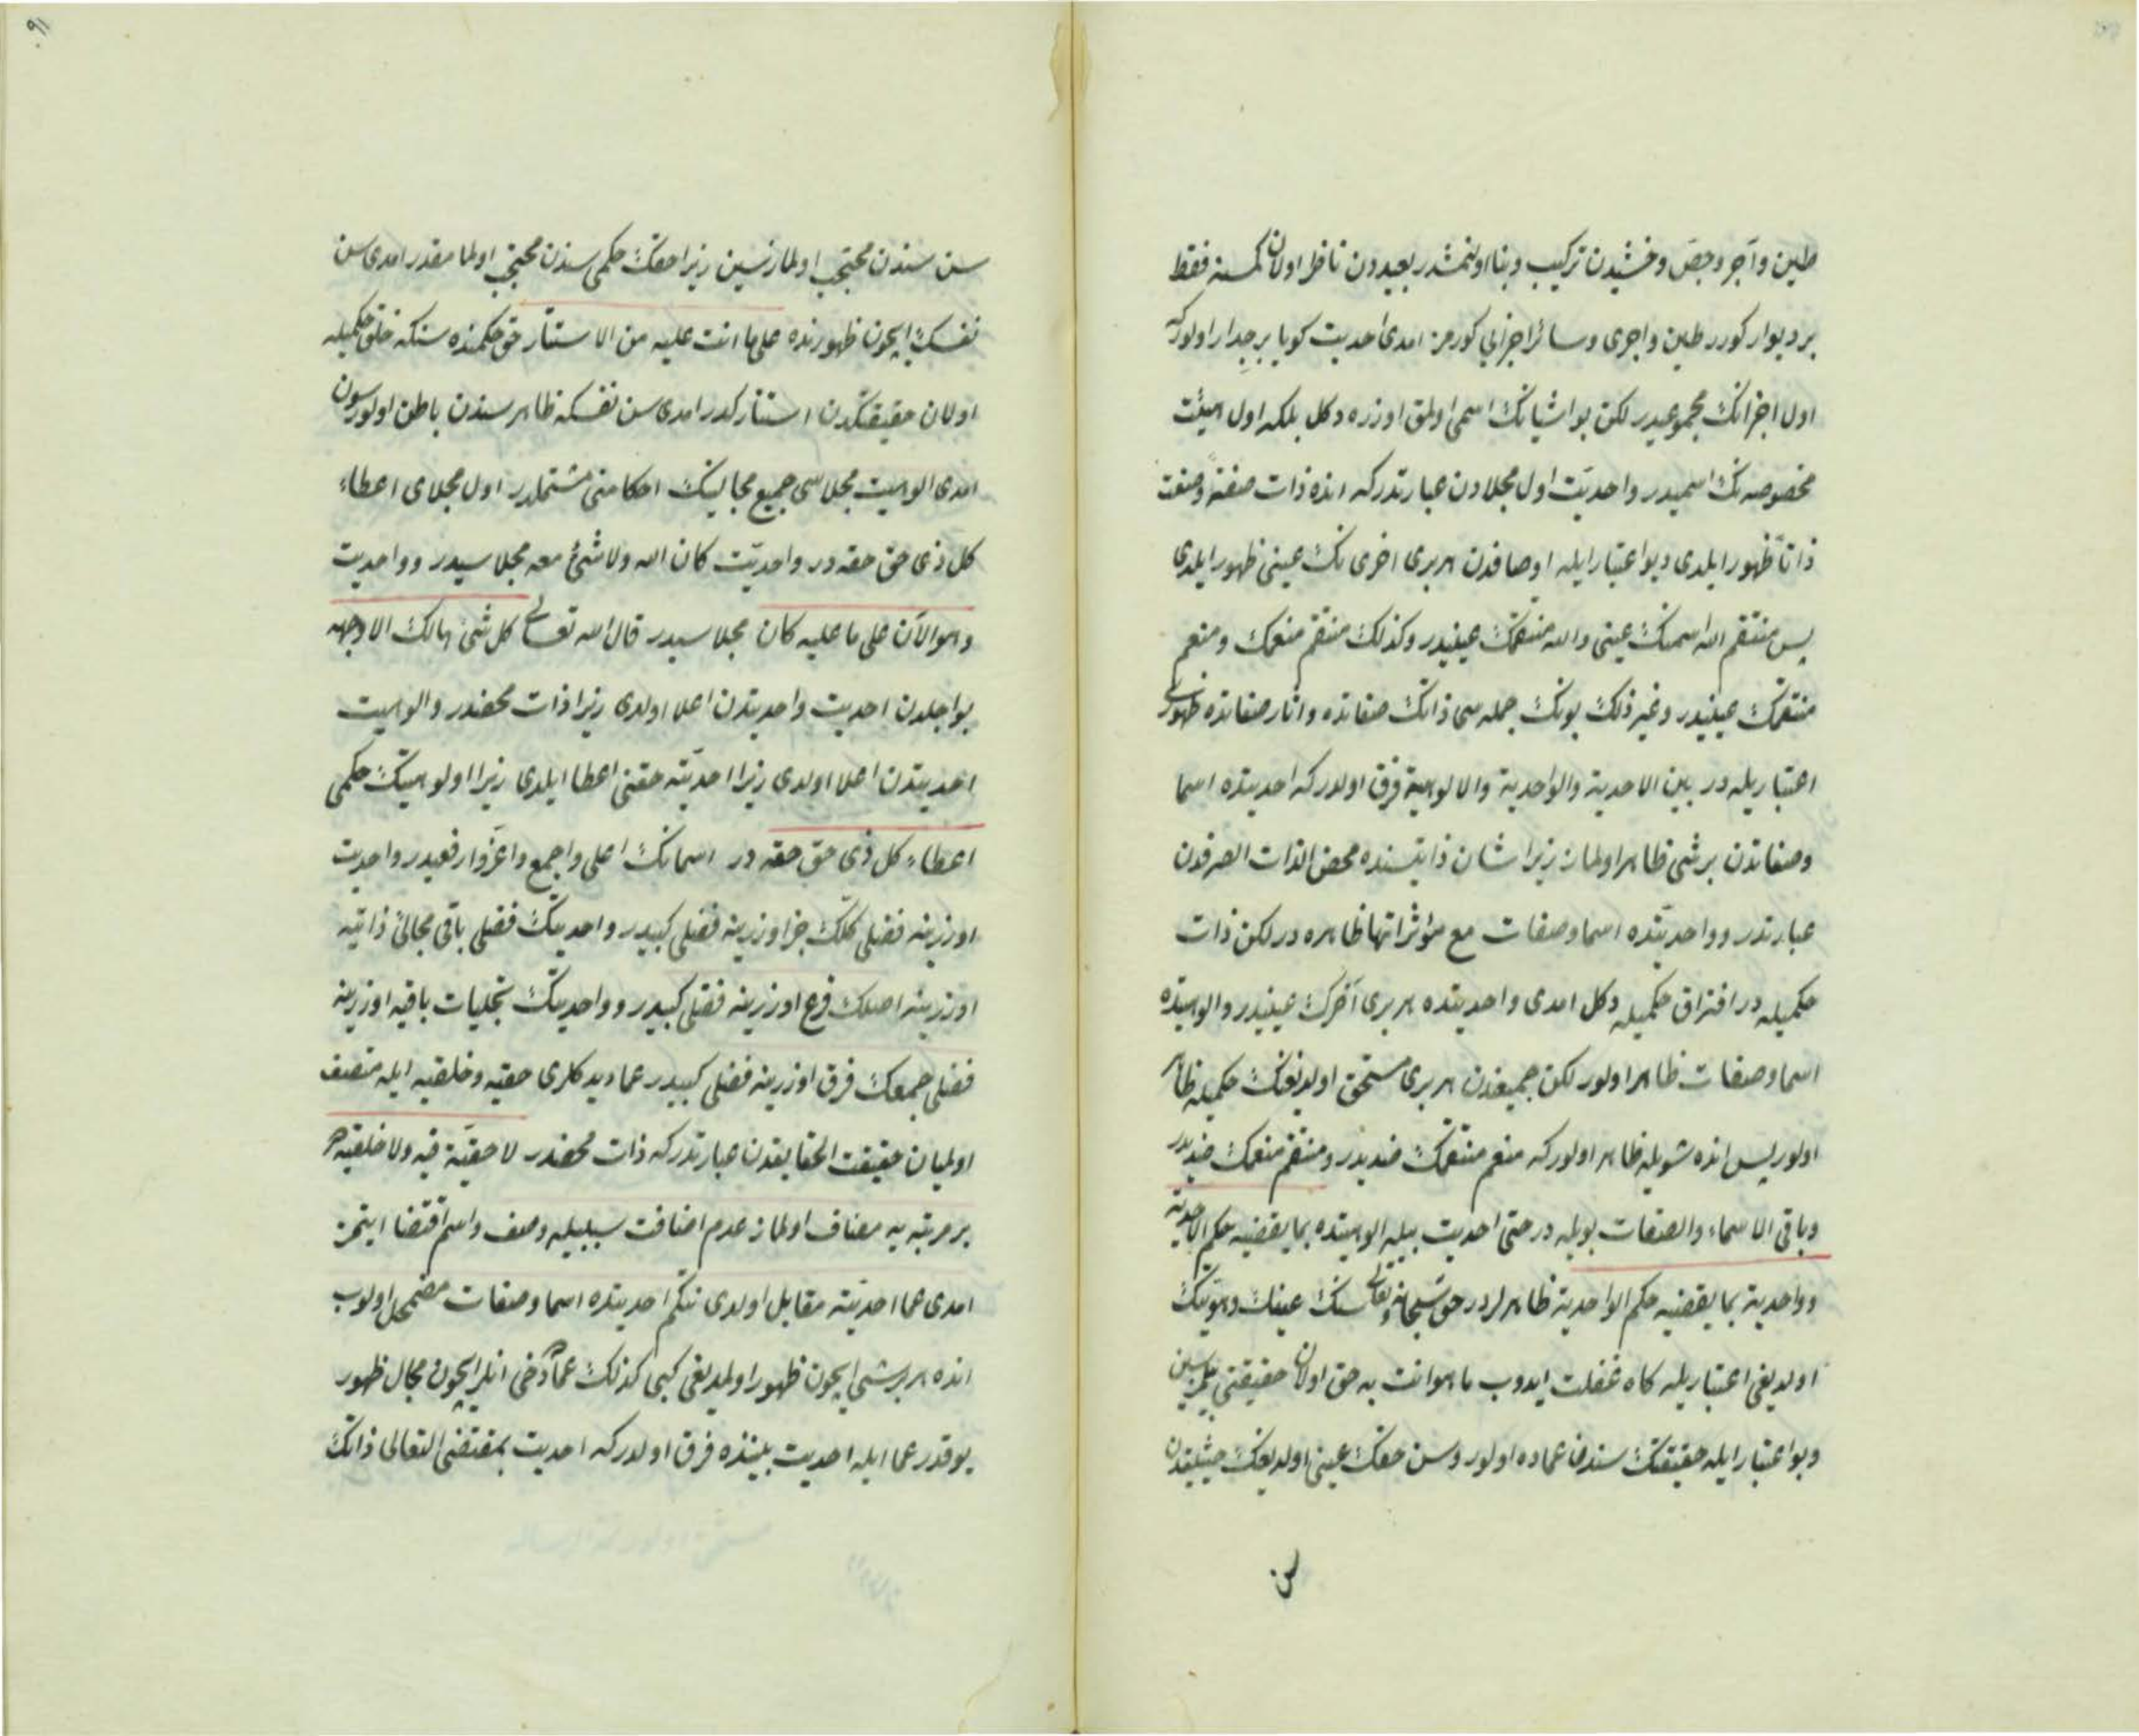 طین وآجر وجص وخشبدن ترکیب وبنا اولنمشدر بعیددن ناظر اولان کمسنه فقط
بر دیوار کورر طین واجری وسائر اجزایی کورمز امدی احدیت کویا بر جدار اولورکه
اول اجزانک مجموعیدر لکن بو اشیانک اسمی اولمق اوزره دکل بلکه اول هیئت
مخصوصه نک اسمیدر واحدیت اول مجلادن عبارتدرکه انده ذات صفةً وصفت
ذاتاً ظهور ایلدی وبو اعتبار ایله اوصافدن هر بری اخری نک عینی ظهور ایلدی
پس منتقم الله اسمنک عینی والله منتقمک عینیدر وکذلک منتقم منعمک ومنعم
منتقمک عینیدر وغیر ذلک بونک جمله سی ذاتک صفاتده واثار صفاتده ظهوری
اعتباریله در بین الاحدیة والواحدیة والالوهیة فرق اولدرکه احدیتده اسما
وصفاتدن بر شی ظاهر اولماز زیرا شان ذاتیسنده محض الذات الصرفدن
عبارتدر وواحدیتده اسما وصفات مع مؤثراتها ظاهره در لکن ذات
حکمیله در افتراق حکمیله دکل امدی واحدیتده هر بری آخرک عینیدر والوهیتده
اسما وصفات ظاهر اولور لکن جمیعندن هر بری مستحق اولدیغنک حکمیله ظاهر
اولور پس انده شویله ظاهر اولورکه منعم منتقمک ضدیدر ومنتقم منعمک ضدیدر
وباقی الاسماء والصفات بویله در حتی احدیت بیله الوهیتده بما یقضیه حکم الاحدیة
وواحدیة بما یقضیه حکم الواحدیة ظاهرلردر حق سبحانه وتعالی سنک عینک وهویتک
اولدیغی اعتباریله کاه غفلت ایدوب ما هو انت به حق اولان حقیقتنی بیلمزسین
وبو اعتبار ایله حقیقتک سندن عماده اولور وسن حقک عینی اولدیغک حیثیتدن
سن
سن سندن محتجب اولمازسین زیرا حقک حکمی سندن محتجب اولمامقدر امدی سن
نفسک ایچون ظهورنده علی ما انت علیه من الاستتار حق حکمنده سنکه خلق حکمیله
اولان حقیقتکدن استتارکدر امدی سن نفسکه ظاهر سندن باطن اولورسون
امدی الوهیت مجلاسی جمیع مجالینک احکامنی مشتملدر اول مجلای اعطاء
کل ذی حق حقه در واحدیت کان الله ولا شئ معه مجلاسیدر وواحدیت
وهو الآن علی ما علیه کان مجلاسیدر قال الله تعالی کل شئ هالک الا وجهه
بو اجلدن احدیت واحدیتدن اعلا اولدی زیرا ذات محضدر والوهیت
احدیتدن اعلا اولدی زیرا احدیته حقنی اعطا ایلدی زیرا اولوهیتک حکمی
اعطاء کل ذی حق حقه در اسمانک اعلی واجمع واعز وارفعیدر واحدیت
اوزرینه فضلی کلک جزء اوزرینه فضلی کبیدر واحدیتک فضلی باقی مجالئ ذاتیه
اوزرینه اصلک فرع اوزرینه فضلی کبیدر وواحدیتک تجلیات باقیه اوزرینه
فضلی جمعک فرق اوزرینه فضلی کبیدر عما دیدکلری حقیه وخلقیه ایله متصف
اولمیان حقیقت الحقایقدن عبارتدرکه ذات محضدر لا حقیة فیه ولا خلقیه هر
بر مرتبه یه مضاف اولماز عدم اضافت سببیله وصف واسم اقتضا ایتمز
امدی عما احدیته مقابل اولدی نتکم احدیتده اسما وصفات مضمحل اولوب
انده هر بر شی ایچون ظهور اولمدیغی کبی کذلک عماده دخی انلر ایچون مجال ظهور
یوقدر عما ایله احدیت بیننده فرق اولدرکه احدیت بمقتضی التعالی ذاتک